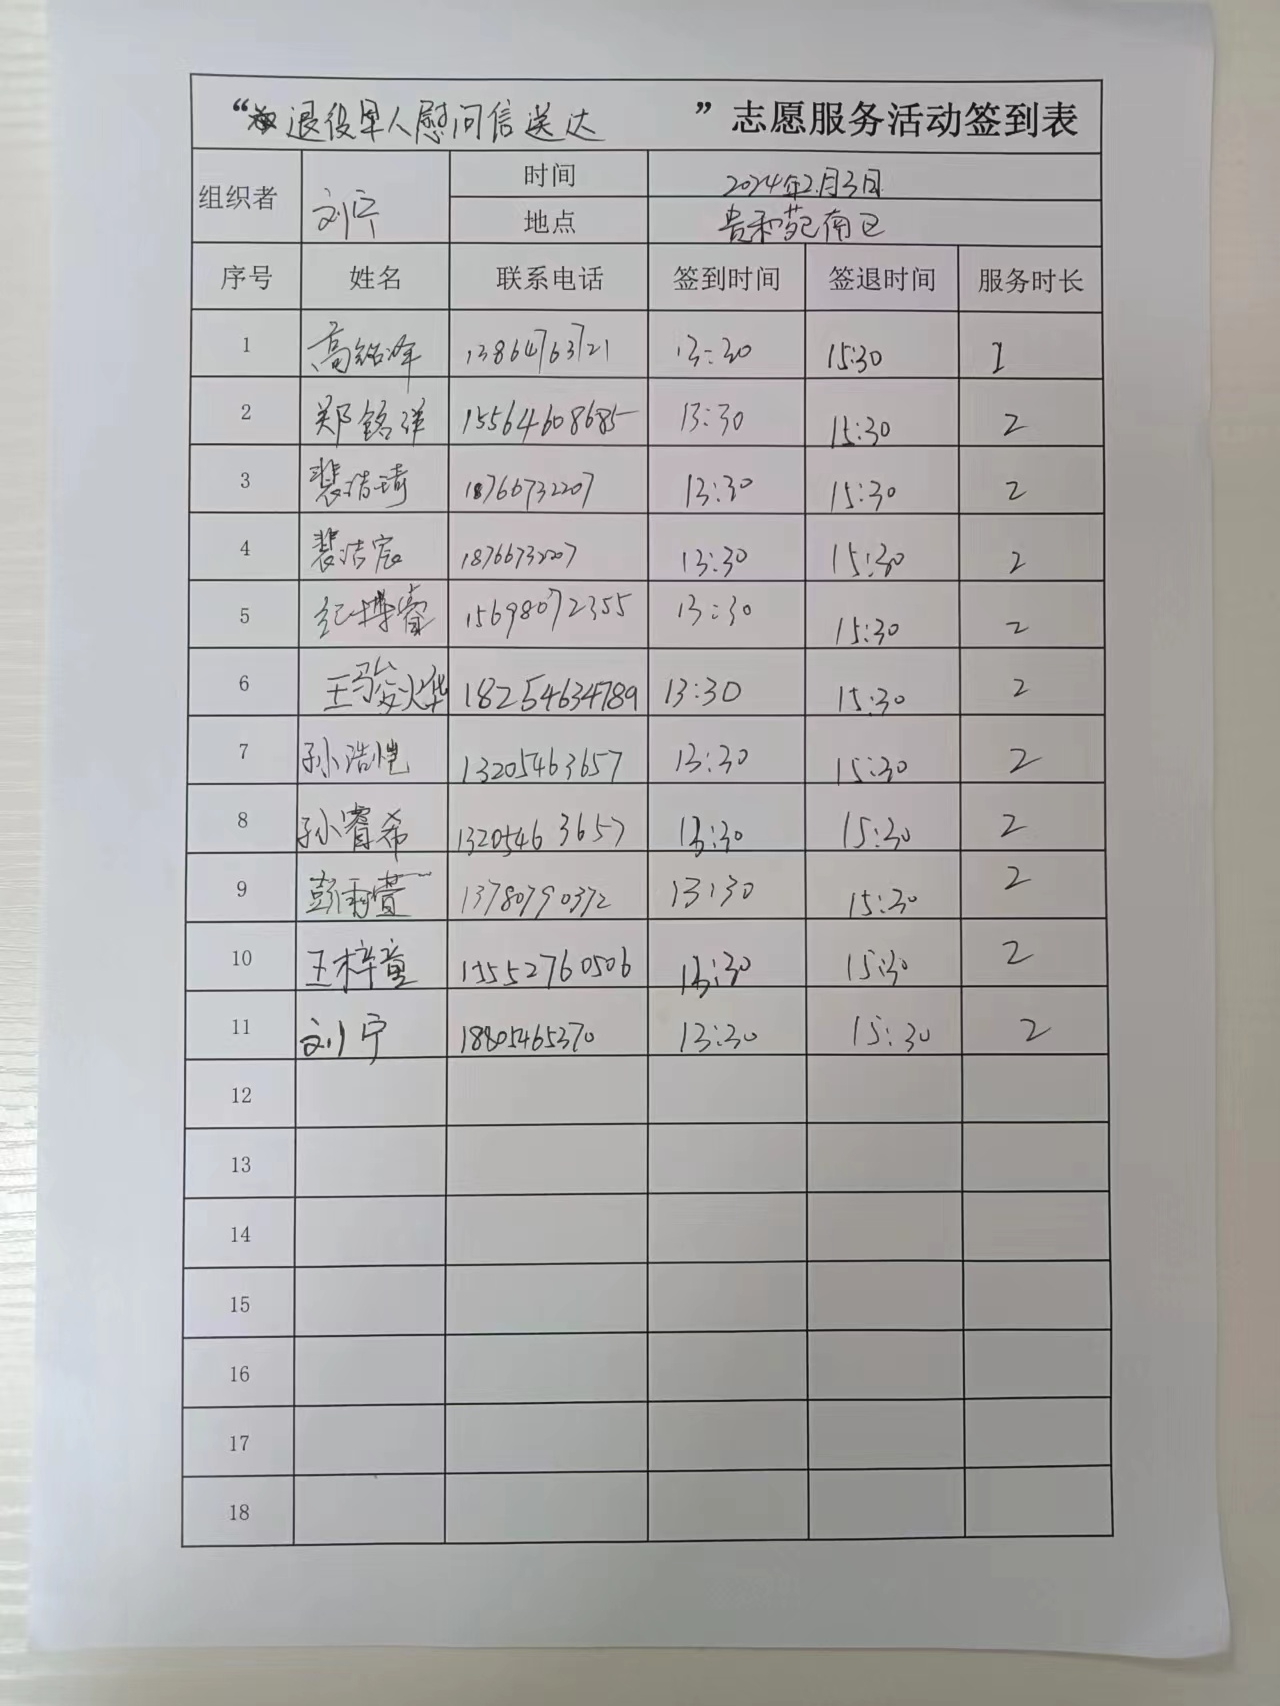 “退役军人慰问信送达 ”志愿服务活动签到表
组织者 刘宁 时间 2024年2月3日
地点 贵和苑南区
序号 姓名 联系电话 签到时间 签退时间 服务时长
1 高铭泽 13864763721 13:30 15:30 2
2 郑铭洋 15564608685 13:30 15:30 2
3 裴洁琦 18766732207 13:30 15:30 2
4 裴洁宸 18766732207 13:30 15:30 2
5 纪博睿 15698072355 13:30 15:30 2
6 王骏烨 18254634789 13:30 15:30 2
7 孙浩恺 13205463657 13:30 15:30 2
8 孙睿希 13205463657 13:30 15:30 2
9 彭雨萱 13780790372 13:30 15:30 2
10 王梓童 15552760506 13:30 15:30 2
11 刘宁 18805465370 13:30 15:30 2
12
13
14
15
16
17
18